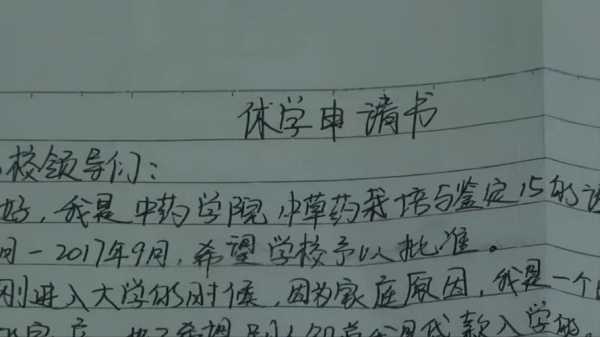 休学申请书
校领导们：
好，我是中药学院中草药栽培与鉴定15的
月-2017年9月，希望学校予以批准。
刚进入大学的时候，因为家庭原因，我是一个
希望别人知道我是贷款入学的